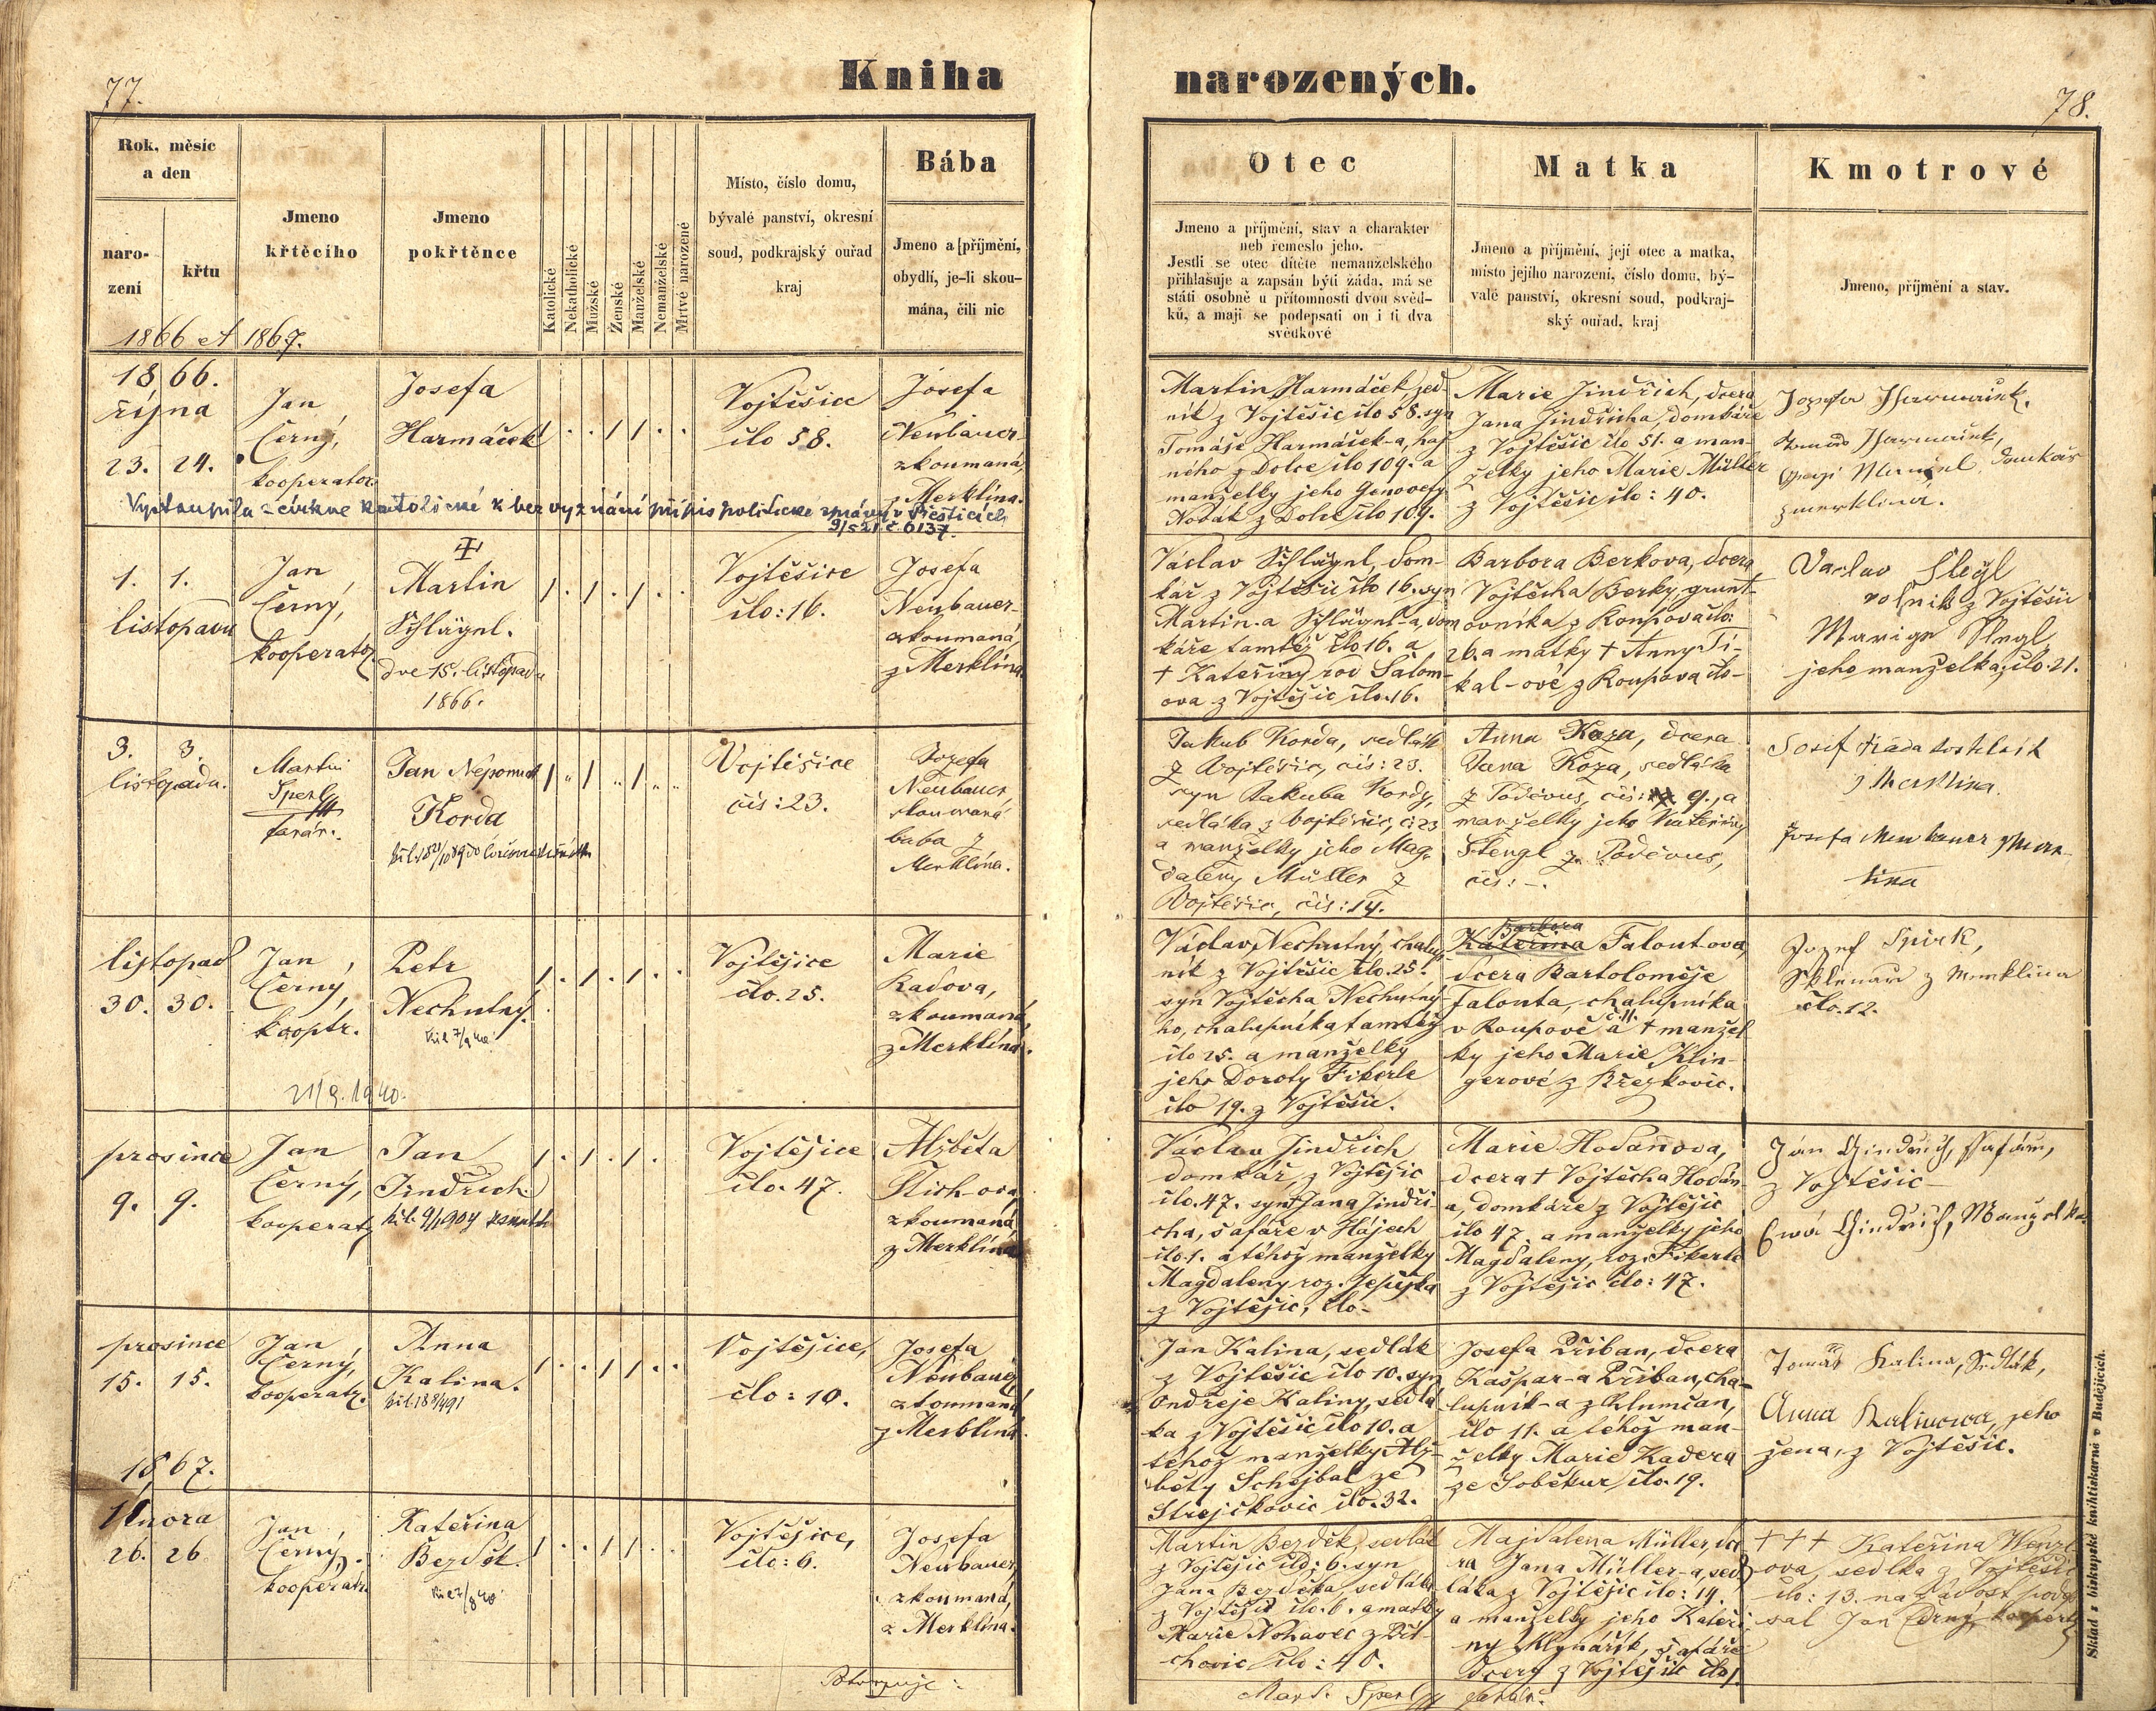 77.
Kniha
narozených.
78.
Rok, měsíc
a den
naro-
zení
křtu
1866 et 1867.
Jmeno
křtěcího
Jmeno
pokřtěnce
Katolické
Nekatholické
Mužské
Ženské
Manželské
Nemanželské
Mrtvé narozené
Místo, číslo domu,
bývalé panství, okresní
soud, podkrajský ouřad
kraj
Bába
Jmeno a příjmění,
obydlí, je-li skou-
mána, čili nic
Otec
Jmeno a příjmění, stav a charakter
neb řemeslo jeho.
Jestli se otec dítěte nemanželského
přihlašuje a zapsán býti žádá, má se
státi osobně u přítomnosti dvou svěd-
ků, a mají se podepsati on i ti dva
svědkové
Matka
Jmeno a příjmění, její otec a matka,
místo jejího narození, číslo domu, bý-
valé panství, okresní soud, podkraj-
ský ouřad, kraj
Kmotrové
Jmeno, příjmění a stav.
1866.
října
23. 24.
Jan
Černý,
kooperator.
Josefa
Harmáček
Vojtěšice
čílo 58.
Josefa
Neubauer
zkoumaná
z Merklína.
Martin Harmáček, sed-
ník z Vojtěšic čílo 58. syn
Tomáše Harmáček-a, haj-
ného z Dolce čílo 109. a
manželky jeho Genovefy
Novák z Dolce čílo 109.
Marie Jindřich, dcera
Jana Jindřicha, domkáře
z Vojtěšic čílo 51. a man-
želky jeho Marie Müller
z Vojtěšic čílo: 40.
Jozefa Harmáček.
Tomáš Harmáček,
domkář
z merklína.
Vystoupila z církve katolické k bez vyznání přípis politické správy v Přešticích
9/5 21 č. 6137.
1. 1.
listopadu
Jan
Černý,
kooperator
Martin
Schlägel.
dne 15. listopadu
1866.
Vojtěšice
čílo: 16.
Josefa
Neubauer
zkoumaná
z Merklína.
Václav Schlägel, dom-
kář z Vojtěšic čílo 16. syn
Martin-a Schlägel-a, dom
káře tamtéž čílo 16. a
† Kateřiny rod Šalom-
ova z Vojtěšic čílo. 16.
Barbora Berkova, dcera
Vojtěcha Berky, grunt-
ovníka z Roupova čílo:
26. a matky † Anny Ti-
kal-ové z Roupova čílo-
Vaclav Slegl
z Vojtěšic
Marige Slegl
jeho manželka, čílo. 21.
3. 3.
listopada.
Martin
Sperl
farář.
Jan Nepomuk
Korda
Vojtěšice
čís: 23.
Jozefa
Neubauer
skoumaná
baba z
Merklína.
Jakub Korda, sedlák
z Vojtěšic, čís: 23.
syn Jakuba Kordy,
sedláka z Vojtěšic, č: 23
a manželky jeho Mag-
daleny Müller z
Vojtěšic, čís: 14.
Anna Koza, dcera
Jana Koza, sedláka
z Poděvous, čís: 9., a
manželky jeho Kateřiny
Štengl z Poděvous,
čís: -.
Josef Kada kostelník
z Merklína.
Josefa Neubauer z Merk-
lína
listopad
30. 30.
Jan
Černý,
kooptr.
21/9. 1940.
Petr
Nechutný.
Vojtěšice
čílo. 25.
Marie
Kadova,
zkoumaná
z Merklína.
Václav Nechutný, chalup-
ník z Vojtěšic čílo. 25.
syn Vojtěcha Nechutný-
ho, chalupníka tamtéž
čílo 25. a manželky
jeho Doroty Fikerle
čílo 19. z Vojtěšic.
Barbora
Kateřina Falout-ova,
dcera Bartoloměje
Falouta, chalupníka
v Roupově č. 11. a † manžel-
ky jeho Marie Klin-
gerové z Křežkovic.
Jozef Spirk,
Sklenař z Merklína
čílo. 12.
prosince
9. 9.
Jan
Černý,
kooperatr
Jan
Jindřich
Vojtěšice
čílo. 47.
Alžběta
Tichova
zkoumaná
z Merklína
Václav Jindřich
domkář, z Vojtěšic
čílo. 47. syn Jana Jindři-
cha, šafáře v Hájech
čílo. 1. a téhož manželky
Magdaleny roz.
z Vojtěšic, čílo-
Marie Hodanova,
dcera † Vojtěcha Hodan-
a, domkáře z Vojtěšic
čílo 47. a manželky jeho
Magdaleny, roz. Fikerle
z Vojtěšic čílo: 47.
Ján Gindrich, Ssafář,
z Vojtěšic
Ewa Gindrich, Manzelka
prosince
15. 15.
Jan
Černý,
kooperatr.
Anna
Kalina.
Vojtěšice,
čílo: 10.
Josefa
Neubauer
zkoumaná
z Merklína.
Jan Kalina, sedlák
z Vojtěšic čílo 10. syn
Ondřeje Kaliny, sedlá
ka z Vojtěšic čílo 10. a
téhož manželky Alž-
běty Schejbal ze
Strejčkovic čílo. 32.
Josefa Přiban, dcera
Kašpar-a Přiban, cha-
lupník-a z Chlumčan,
čílo 11. a téhož man-
želky Marie Kadera
ze Soběkur čílo. 19.
Tomáš Kalina, Sedlák,
Anna Kalinowa, jeho
žena, z Vojtěšic.
1867.
Února
26. 26
Jan
Černý,
kooperatr.
Kateřina
Bezděk.
Vojtěšice,
čílo: 6.
Josefa
Neubauer,
zkoumaná,
z Merklína.
Martin Bezděk, sedlák
z Vojtěšic čílo: 6. syn
Jana Bezděka, sedláka
z Vojtěšic čílo. 6. a matky
Marie Nohavec z Při-
chovic čílo: 40.
Majdalena Müller, dce
ra Jana Müller-a, sed-
láka z Vojtěšic čílo: 14.
a manželky jeho Kateři-
ny Mlynařík, šafáře
dcery z Vojtěšic čílo 1.
+ + + Kateřina Wenzl-
ova, sedlka z Vojtěšic
čílo: 13. na žádost pode-
sal Jan Černý, koopertr
Potvrzuje:
Mart. Sperl farář.
Sklad z biskupské knihtiskárně v Budějicích.